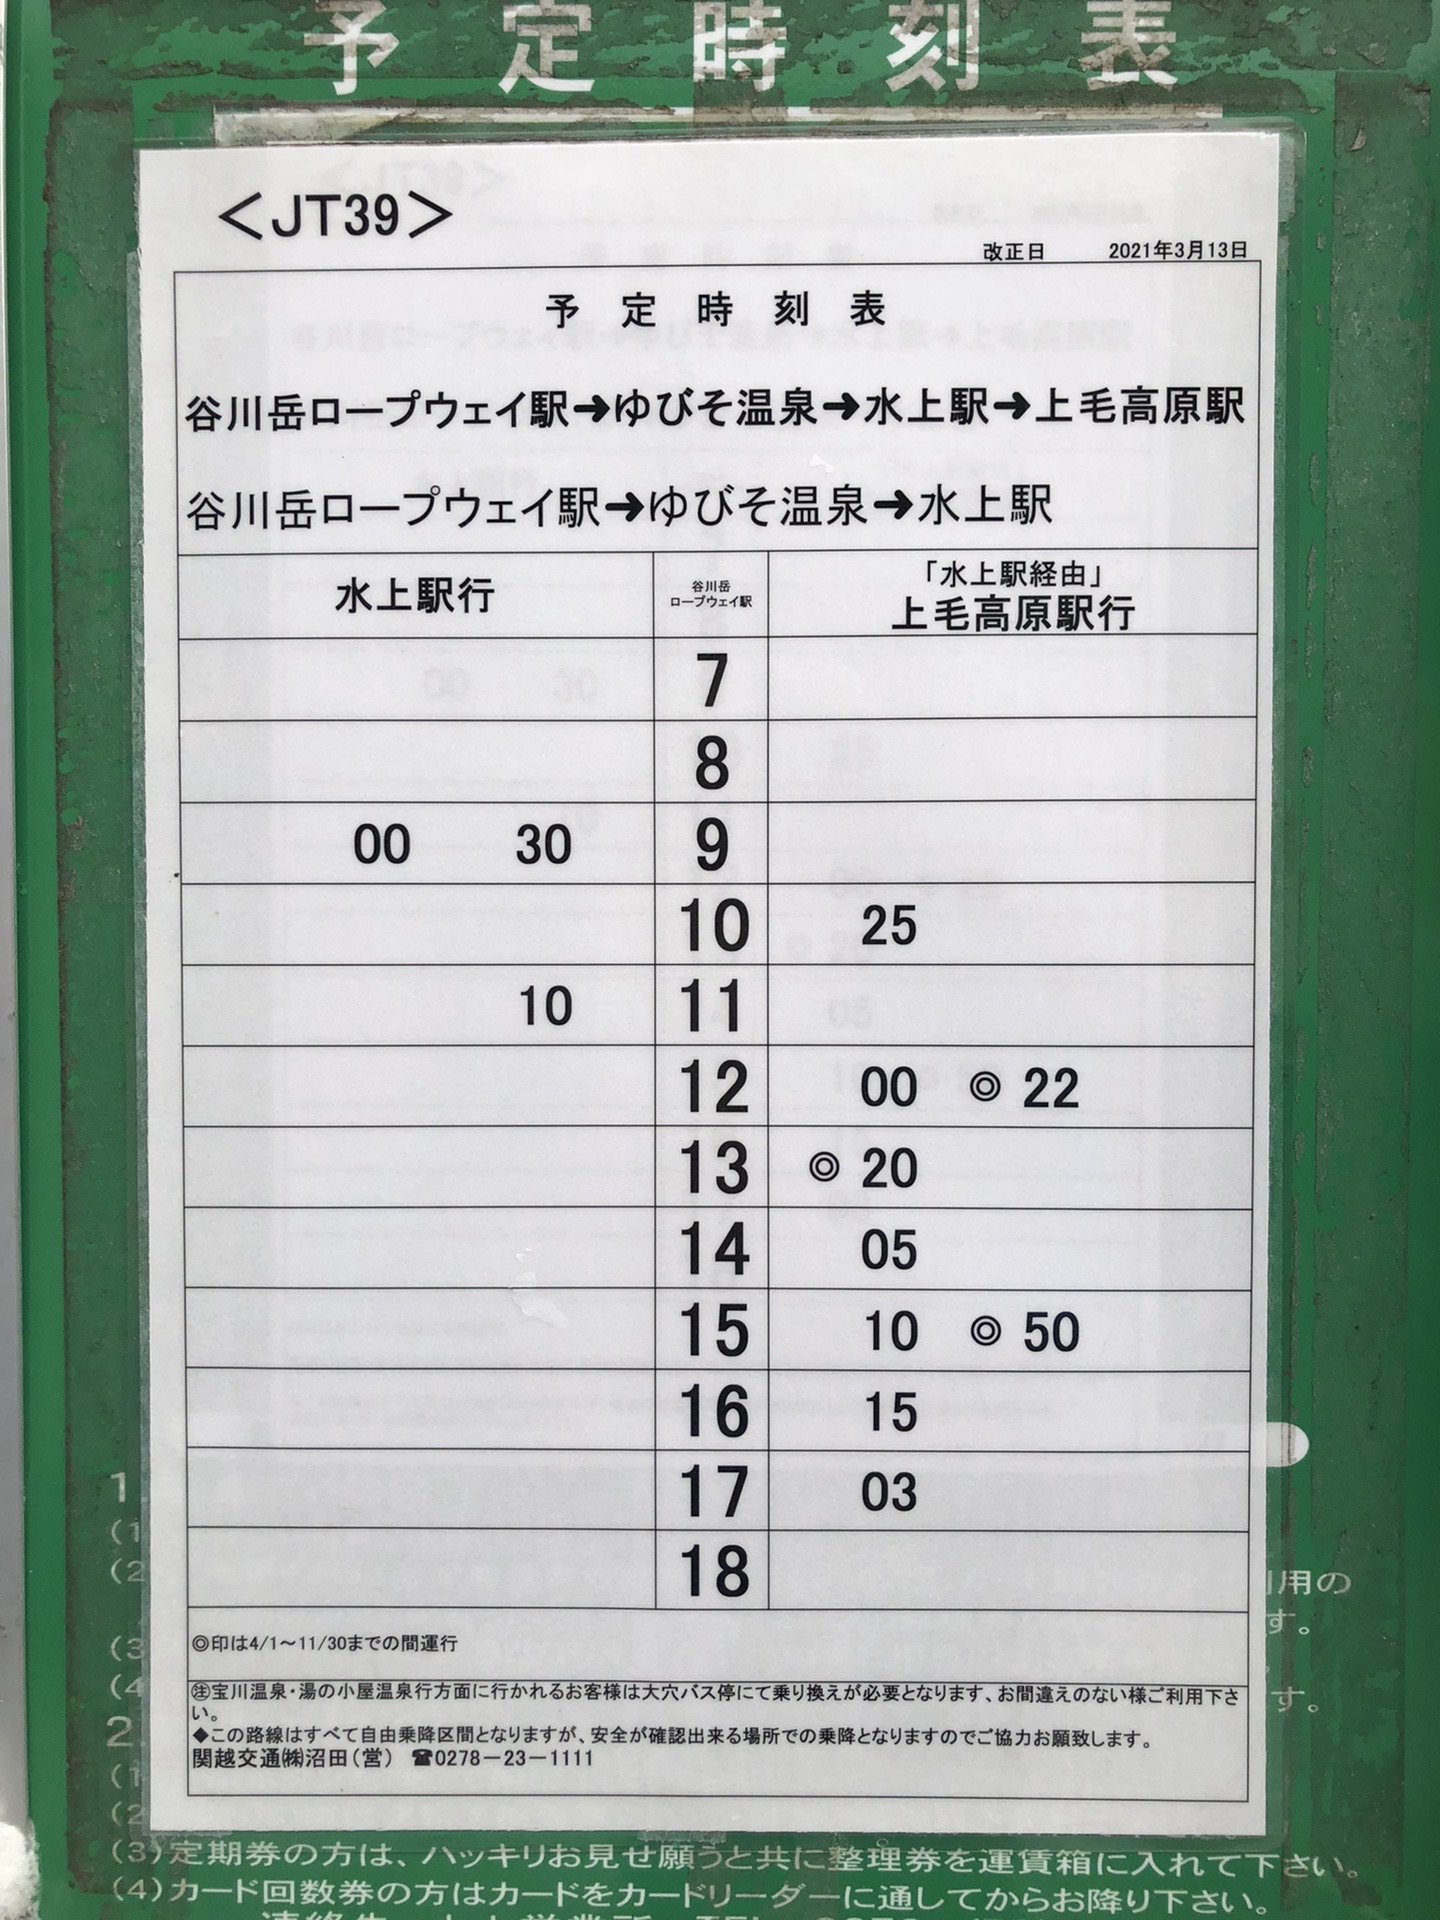 予定時刻表
＜JT39＞
改正日 2021年3月13日
予定時刻表
谷川岳ロープウェイ駅➜ゆびそ温泉➜水上駅➜上毛高原駅
谷川岳ロープウェイ駅➜ゆびそ温泉➜水上駅
水上駅行 谷川岳ロープウェイ駅 「水上駅経由」上毛高原駅行
7
8
00 30 9
10 25
10 11
12 00 ◎ 22
13 ◎ 20
14 05
15 10 ◎ 50
16 15
17 03
18
◎印は4/1～11/30までの間運行
㊟宝川温泉・湯の小屋温泉行方面に行かれるお客様は大穴バス停にて乗り換えが必要となります、お間違えのない様ご利用下さ
い。
◆この路線はすべて自由乗降区間となりますが、安全が確認出来る場所での乗降となりますのでご協力お願致します。
関越交通㈱沼田（営） ☎0278－23－1111
(3)定期券の方は、ハッキリお見せ願うと共に整理券を運賃箱に入れて下さい。
(4)カード回数券の方はカードをカードリーダーに通してからお降り下さい。